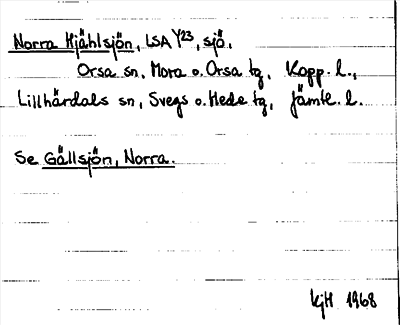 Norra Hjåhlsjön, LSA Y23, sjö.
Orsa sn, Mora o. Orsa tg, Kopp. l.,
Lillhärdals sn, Svegs o. Hede tg, Jämtl. l.
Se Gällsjön, Norra.
KjH 1968